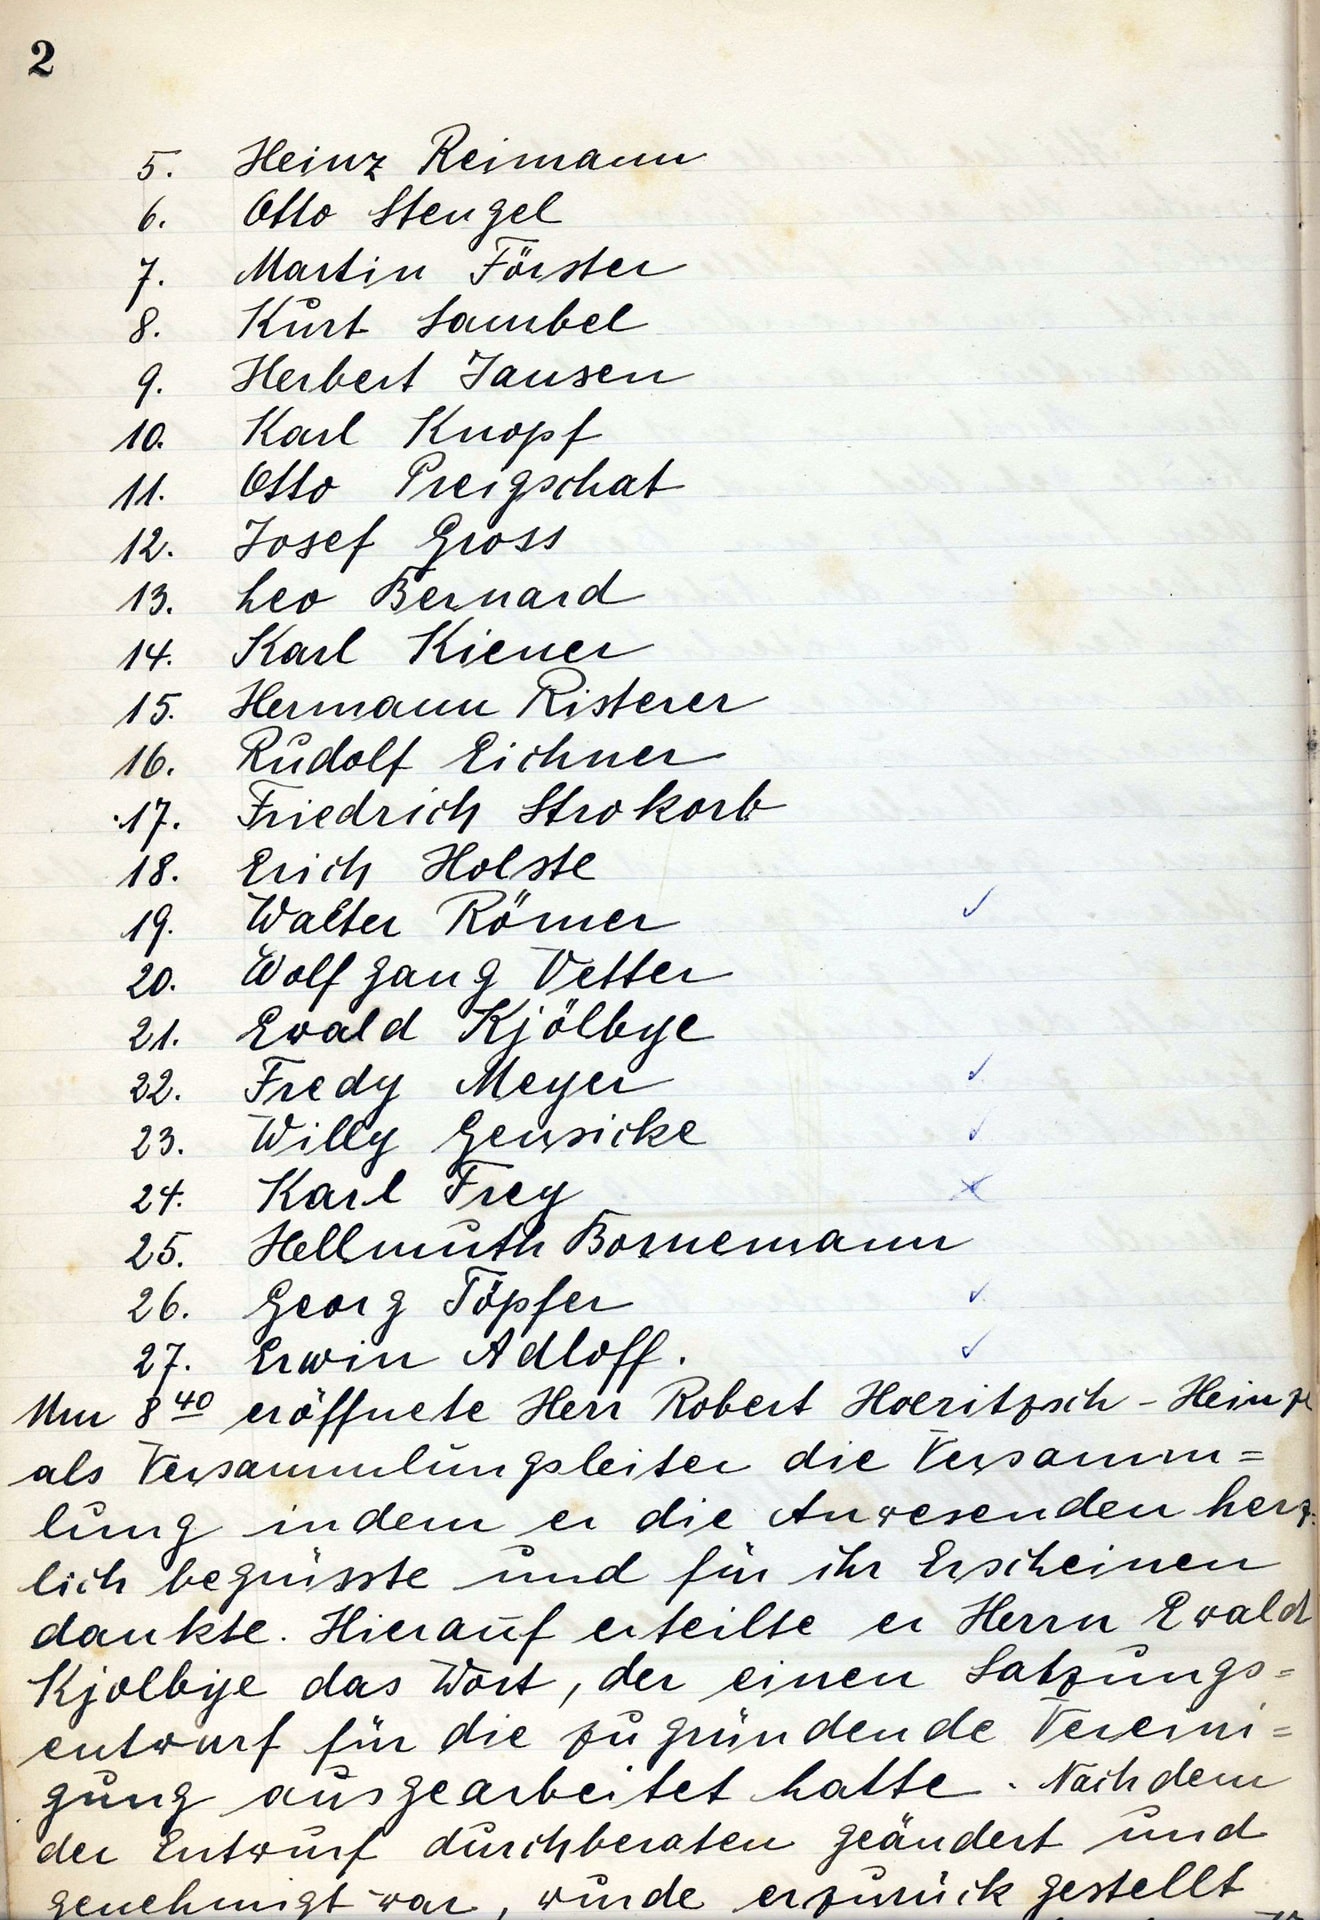 2
5. Heinz Reimann
6. Otto Stengel
7. Martin Förster
8. Kurt Sambel
9. Herbert Jansen
10. Karl Knopf
11. Otto Preigschat
12. Josef Gross
13. Leo Bernard
14. Karl Kiener
15. Hermann Risterer
16. Rudolf Eichner
17. Friedrich Strokorb
18. Erich Holste
19. Walter Römer ✓
20. Wolfgang Vetter
21. Ewald Kjölbye
22. Fredy Meyer ✓
23. Willy Gensicke ✓
24. Karl Frey x
25. Hellmuth Bornemann
26. Georg Töpfer ✓
27. Erwin Adloff. ✓
Um 8 40 eröffnete Herr Robert Hoeritzsch - Heinze
als Versammlungsleiter die Versamm=
lung indem er die Anwesenden herz=
lich begrüsste und für ihr Erscheinen
dankte. Hierauf erteilte er Herrn Ewald
Kjolbye das Wort, der einen Satzungs=
entwurf für die zu gründende Vereini=
gung ausgearbeitet hatte. Nachdem
der Entwurf durchberaten geändert und
genehmigt war, wurde er zurück gestellt